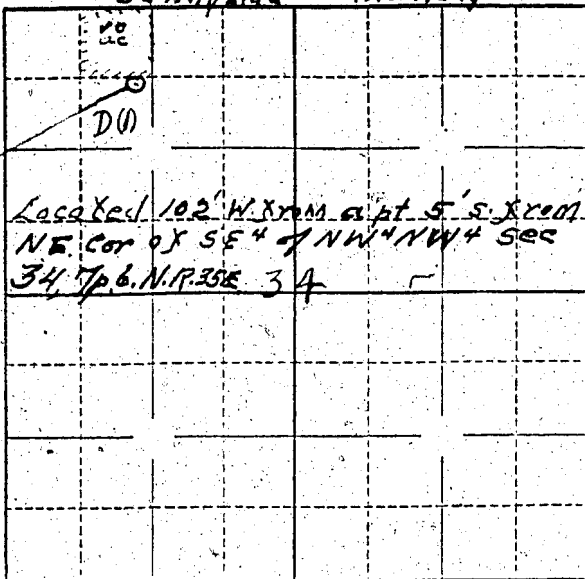 10
ac
D(1)
Located 102' W. from a pt 5' s. from
NE. Cor of SE 4 of NW 4 NW 4 Sec
34, Tp. 6. N. R. 35E. 34